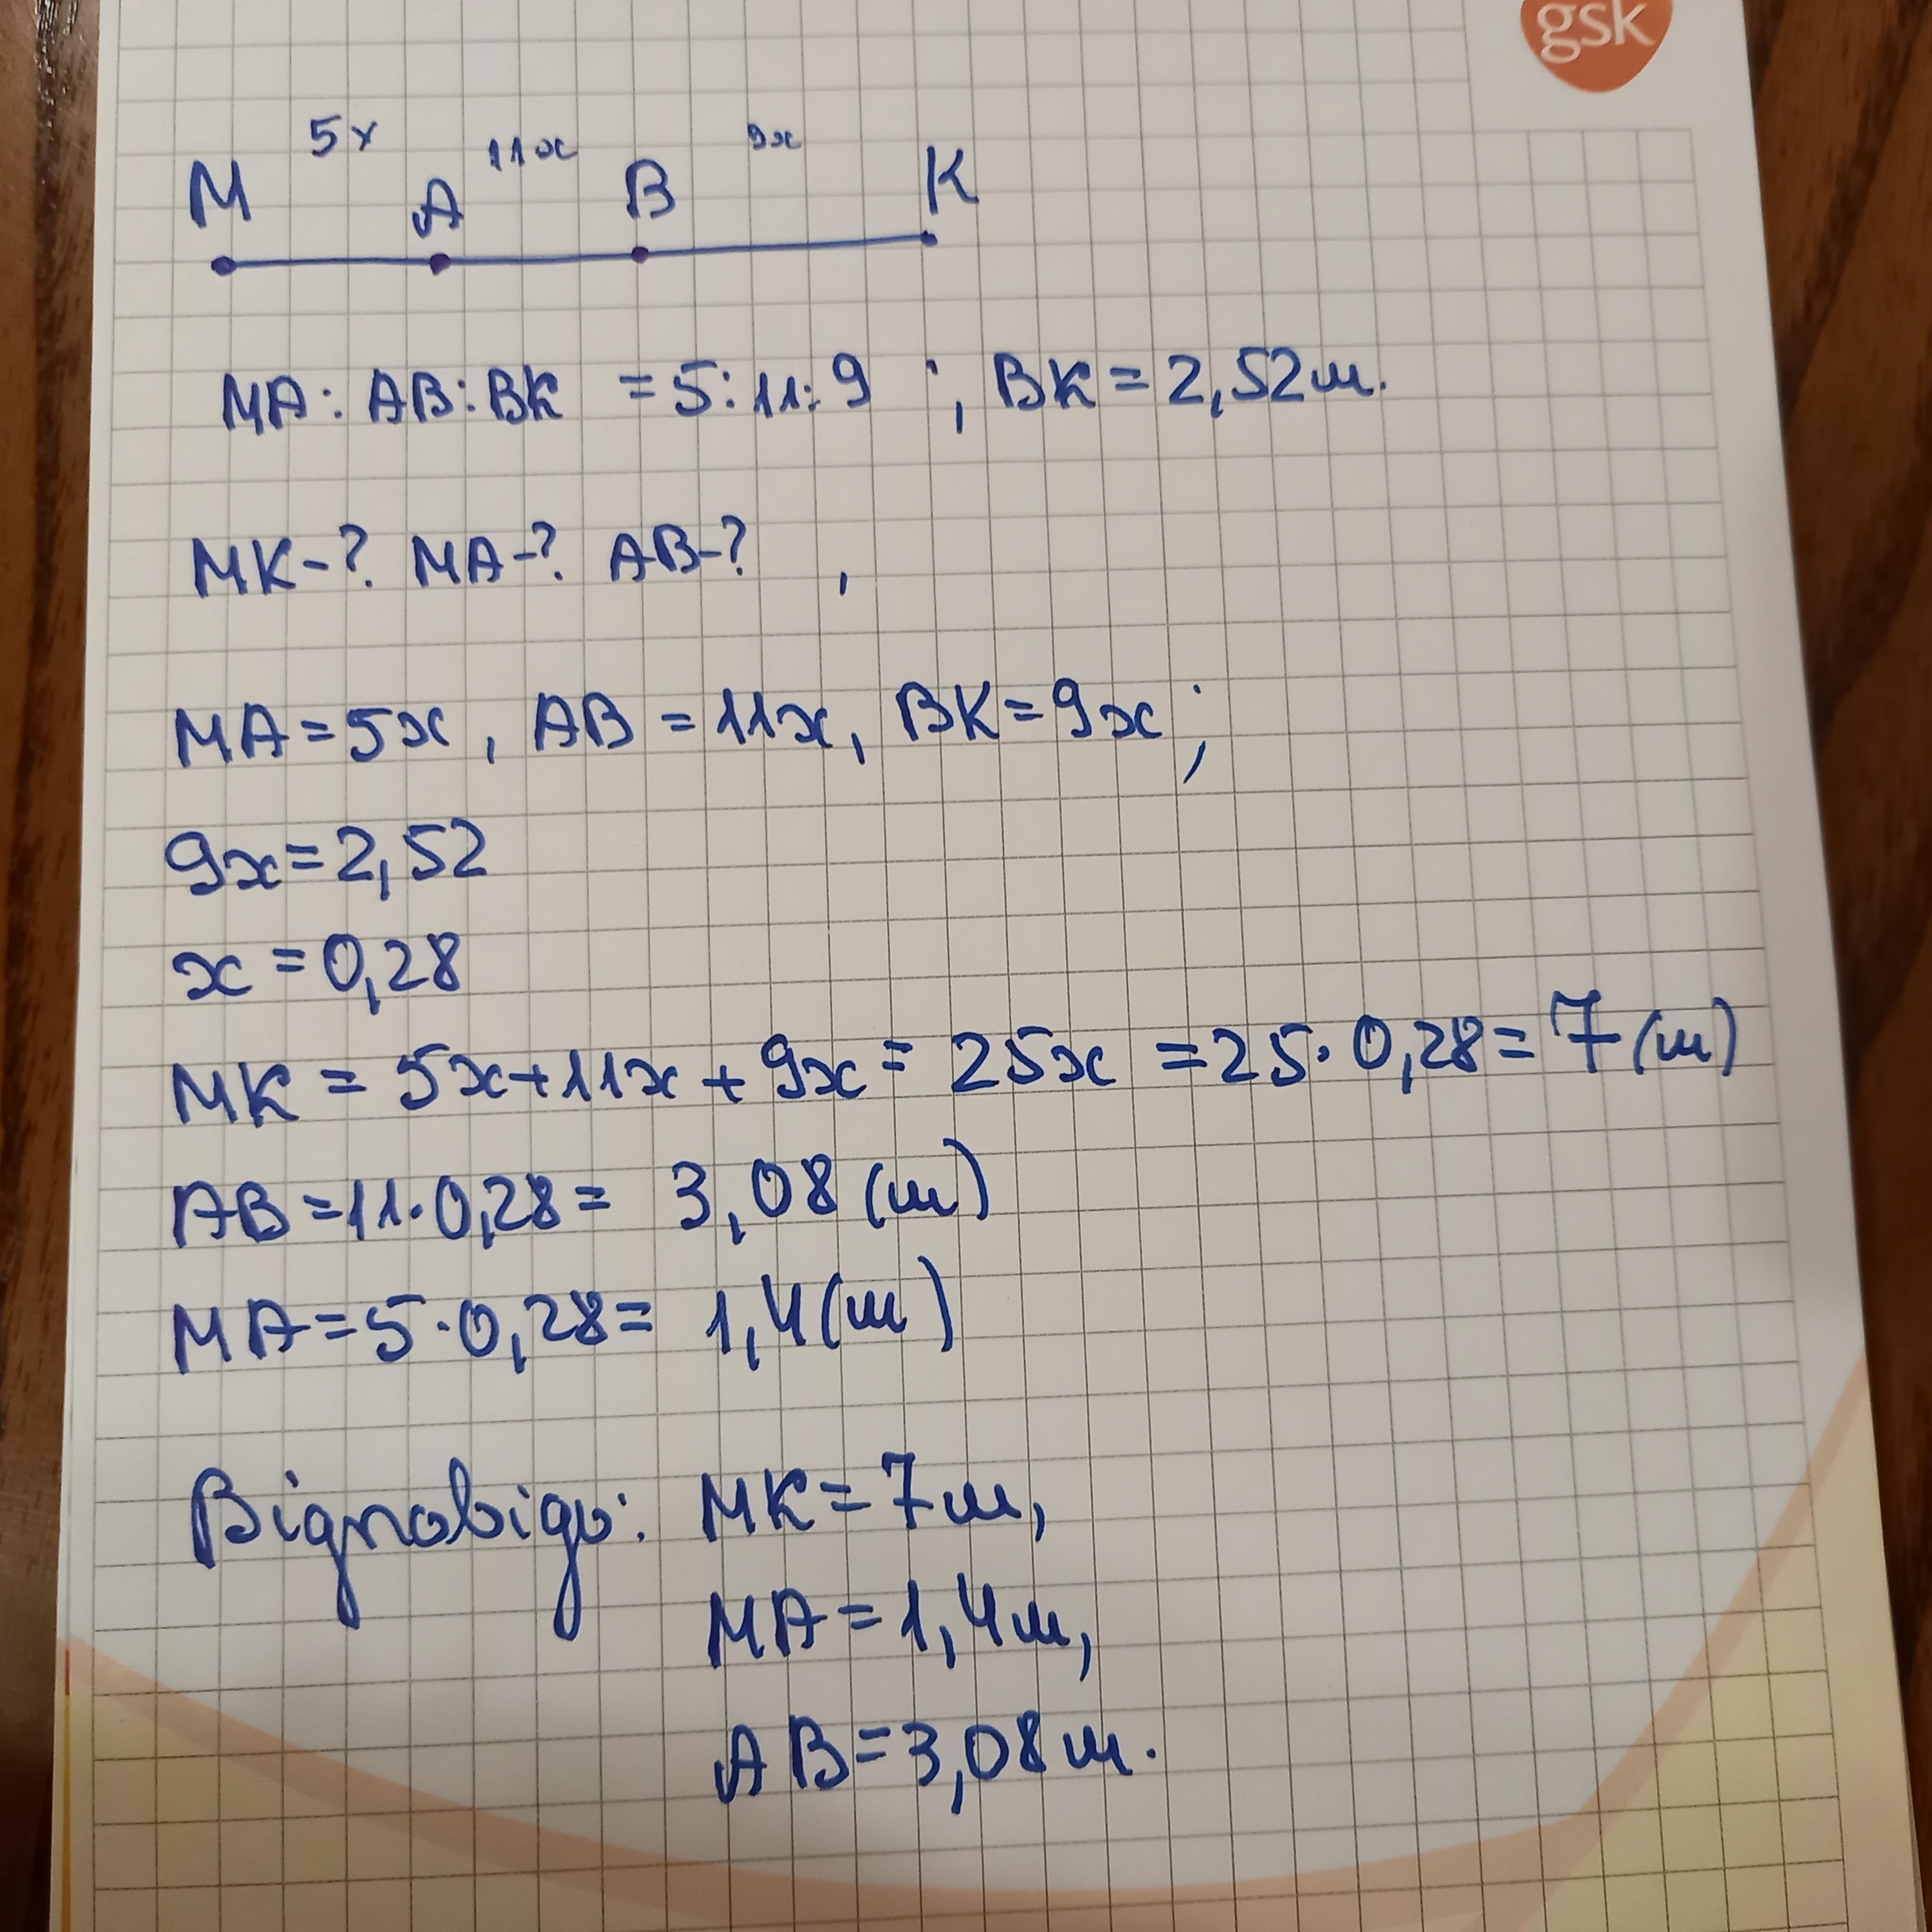 gsk
5x 11x 9x
M A B K
MA : AB : BK = 5 : 11 : 9 ; BK = 2,52 м.
MK-? MA-? AB-? ,
MA = 5x , AB = 11x, BK = 9x ;
9x = 2,52
x = 0,28
MK = 5x + 11x + 9x = 25x = 25 · 0,28 = 7 (м)
AB = 11 · 0,28 = 3,08 (м)
MA = 5 · 0,28 = 1,4 (м)
Відповідь: MK = 7 м,
MA = 1,4 м,
AB = 3,08 м.